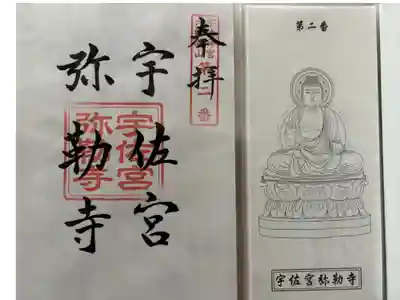 奉拝
宇佐宮
弥勒寺
宇佐宮
弥勒寺
第二番
宇佐宮弥勒寺